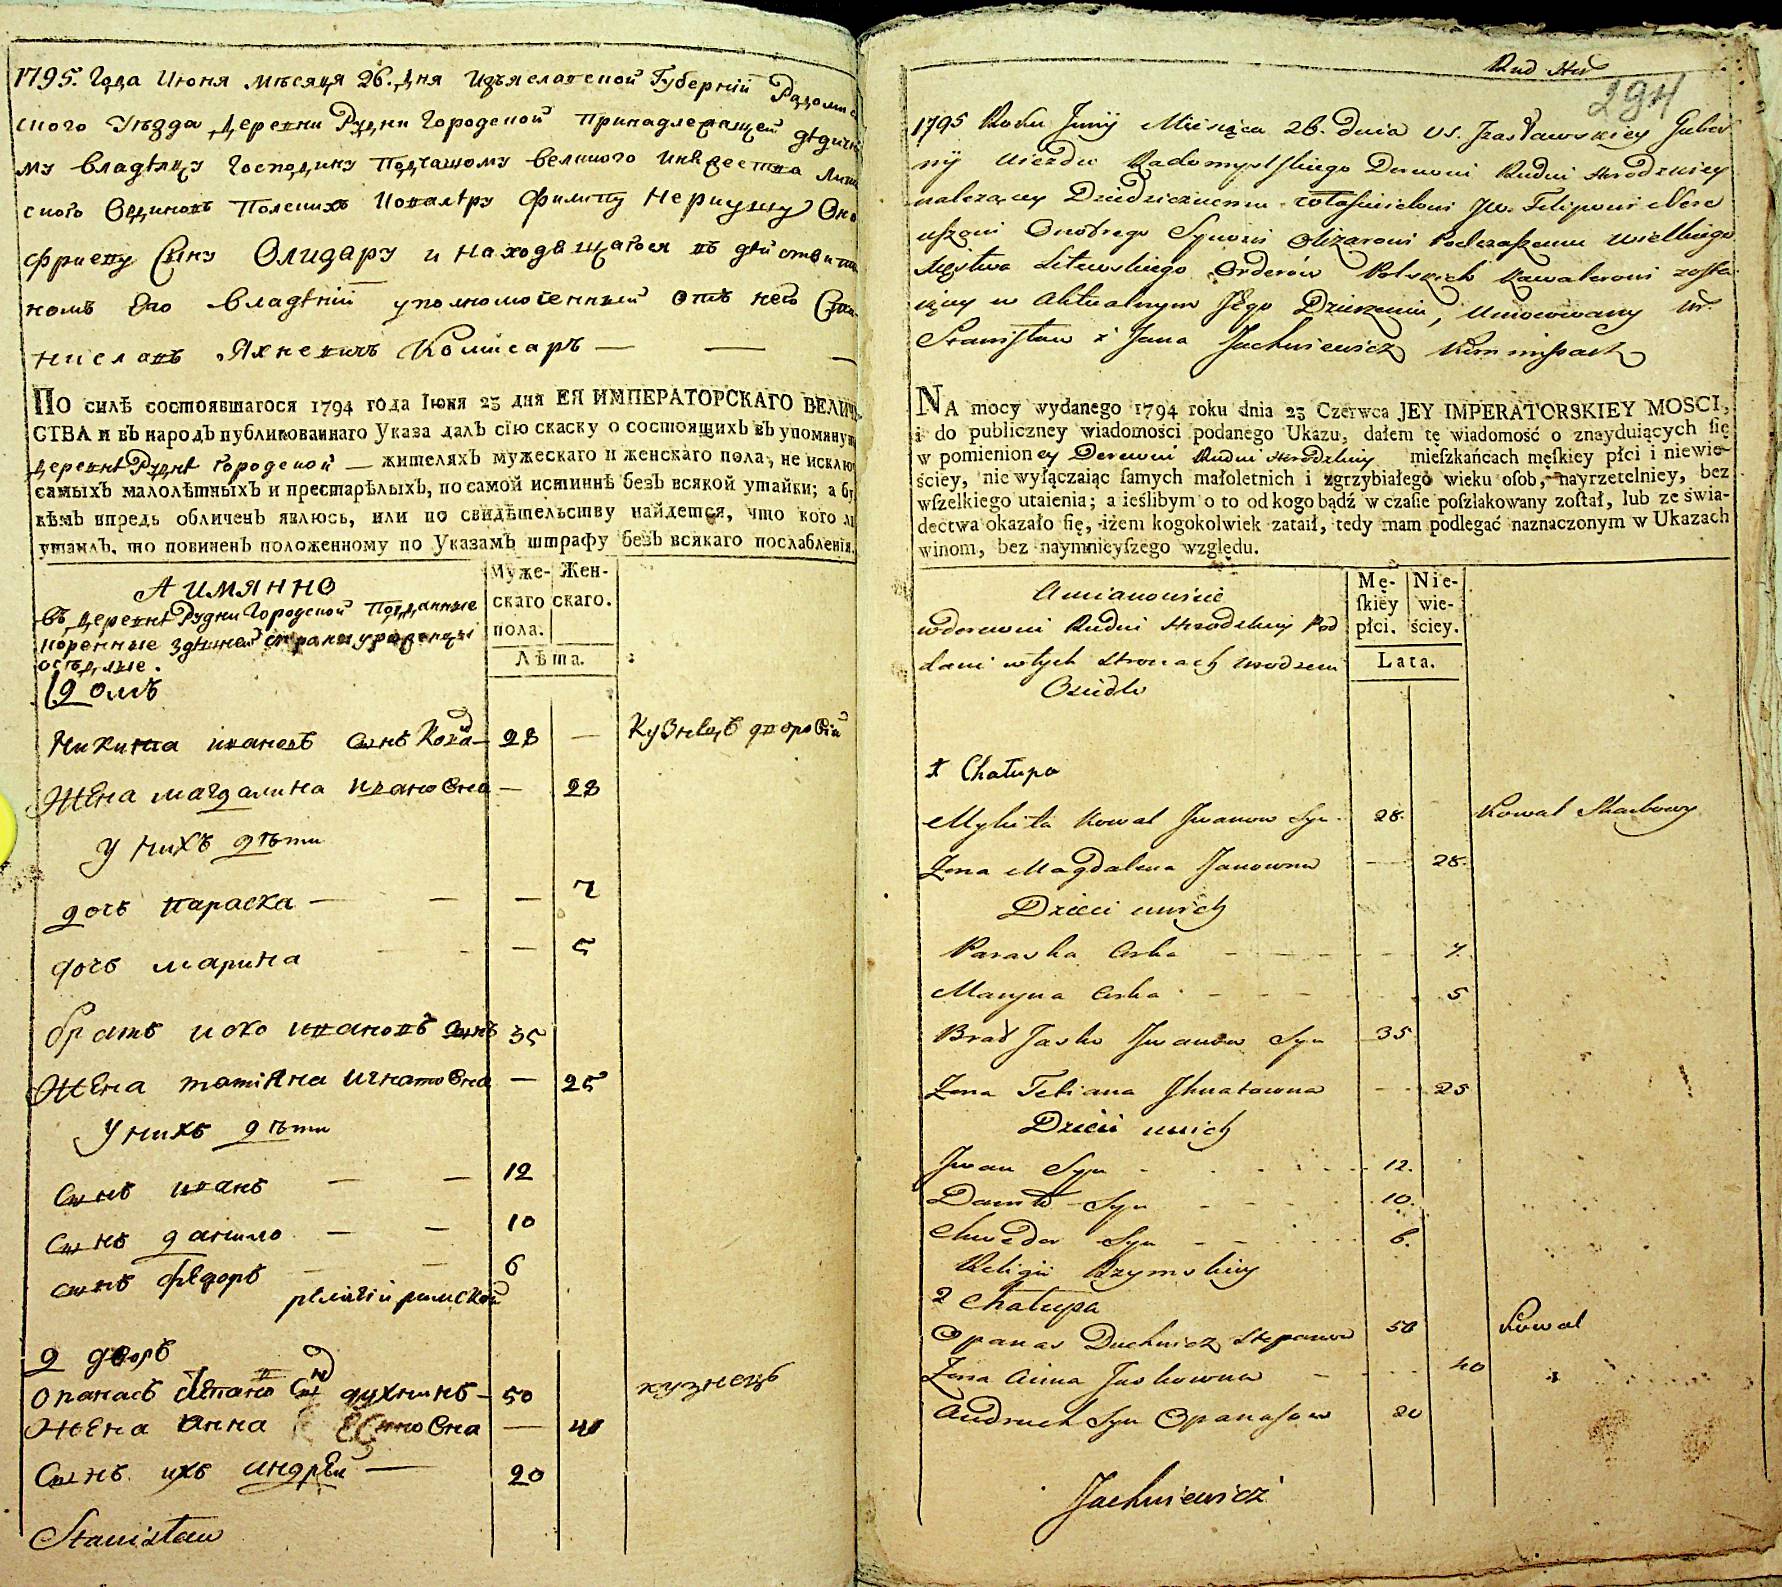 1795. Года Июня мѣсяца 26. дня Изъяславской Губерній Радомы
скаго Уѣзда деревни Рудни Городской принадлежащей дѣдичн
му владѣлцу Господину Подчашому великого Князства Лит
ского Ординовъ Полскихъ Ковалѣру Филипу Нериушу Оно
фриеву Сыну Олизару и находящагося въ дѣйствител
номъ его владѣній уполномоченный отъ него Ста
ниславъ Яхневичъ Комисаръ —
ПО силѣ состоявшагося 1794 года Iюня 23 дня ЕЯ ИМПЕРАТОРСКАГО ВЕЛИЧЕ-
СТВА и въ народъ публикованнаго Указа далъ сїю скаску о состоящихъ въ упомянут
деревнѣ Руднѣ Городской — жителяхъ мужескаго и женскаго пола, не исклю
самыхъ малолѣтныхъ и престарѣлыхъ, по самой истиннѣ безъ всякой утайки; а бу
кѣмъ впредь обличенъ явлюсь, или по свидѣтельству найдется, что кого ли
утаилъ, то повиненъ положенному по Указамъ штрафу безъ всякаго послабленія.
А ИМЯННО
въ деревнѣ Рудни Городской Подданные
коренные здѣшней страны уроженцы
осѣдлые.
1 домъ
Муже- Жен-
скаго скаго.
пола.
Лѣта.
Никита ивановъ сынъ Ковал — 28 — Кузнецъ дворовій
Жена магдалина ивановна — 28
у нихъ дѣти
дочь параска — — — 7
дочь марина — 5
братъ иско ивановъ сынъ 35
Жена татіяна игнатовна — 25
У нихъ дѣти
Сынъ иванъ — — 12
Сынъ данило — — 10
сынъ фѣдоръ — — 6
рѣлигіи римской
2 дворъ
Опанасъ Степано Сын духничъ — 50 кузнецъ
Жена анна новна — 40
Сынъ ихъ андрѣи — 20
Stanisław
Rud Hr
294
1795 Roku Junij Miesiąca 26. dnia vs. Jzasławskiey Guber
nij Uiezdu Radomyslskiego Derewni Rudni Horodzkiey
należącey Dziedzicznemu właścicielowi Jw. Filipowi Nere
uszowi Onofrego Synowi Olizarowi Podczaszemu Wielkiego
Xięstwa Litewskiego Orderów Polskich Kawalerowi zosta-
iący w Aktualnym Jego Dzierżeniu, Umocowany Wr.
Stanisław z Jana Jachniewicz Kommissarz
NA mocy wydanego 1794 roku dnia 23 Czerwca JEY IMPERATORSKIEY MOSCI,
i do publiczney wiadomości podanego Ukazu, dałem tę wiadomość o znayduiących ſię
w pomienioney Derewni Rudni Horodzkiey mieſzkańcach męſkiey płci i niewie-
ściey, nie wyłączaiąc ſamych małoletnich i zgrzybiałego wieku oſob, nayrzetelniey, bez
wſzelkiego utaienia; a ieślibym o to od kogo bądź w czaſie poſzlakowany zoſtał, lub ze świa-
dectwa okazało ſię, iżem kogokolwiek zataił, tedy mam podlegać naznaczonym w Ukazach
winom, bez naymnieyſzego względu.
Amianowicie
w derewni Rudni Horodzkiey Pod
dani w tych Stronach Urodzeni
Osiedli
Mę- Nie-
ſkiey wie-
płci. ściey.
Lata.
1 Chałupa
Mykita Kowal Jwanow Syn 28. Kowal Skarbowy
Żona Magdalena Janowna — 28.
Dzieci unich
Paraska Corka 7.
Maryna Corka 5
Brat Jasko Jwanow Syn 35
Żona Tetiana Jhnatowna 25
Dzieci unich
Jwan Syn 12.
Daniło Syn 10.
Chwedor Syn 6.
Religii Rzymskiey
2 Chałupa
Opanas Duchnicz Stepanow 50 Kowal
Żona Anna Jaskowna 40
Andruch Syn Opanasow 20
Jachniewicz